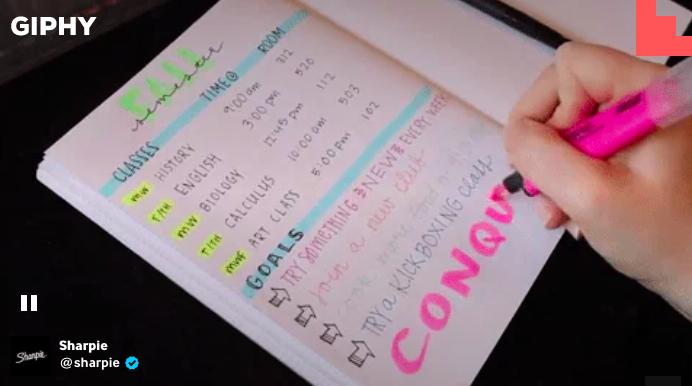 GIPHY
FALL
semester
CLASSES TIME@ ROOM
MW HISTORY 9:00 am 312
T/TH ENGLISH 3:00 pm 520
MW BIOLOGY 12:45 pm 112
T/TH CALCULUS 10:00 am 503
MWF ART CLASS 5:00 pm 102
GOALS
TRY SOMETHING NEW EVERY WEEK
Join a new club
TRY a KICKBOXING class
CONQU
Sharpie
Sharpie
@sharpie